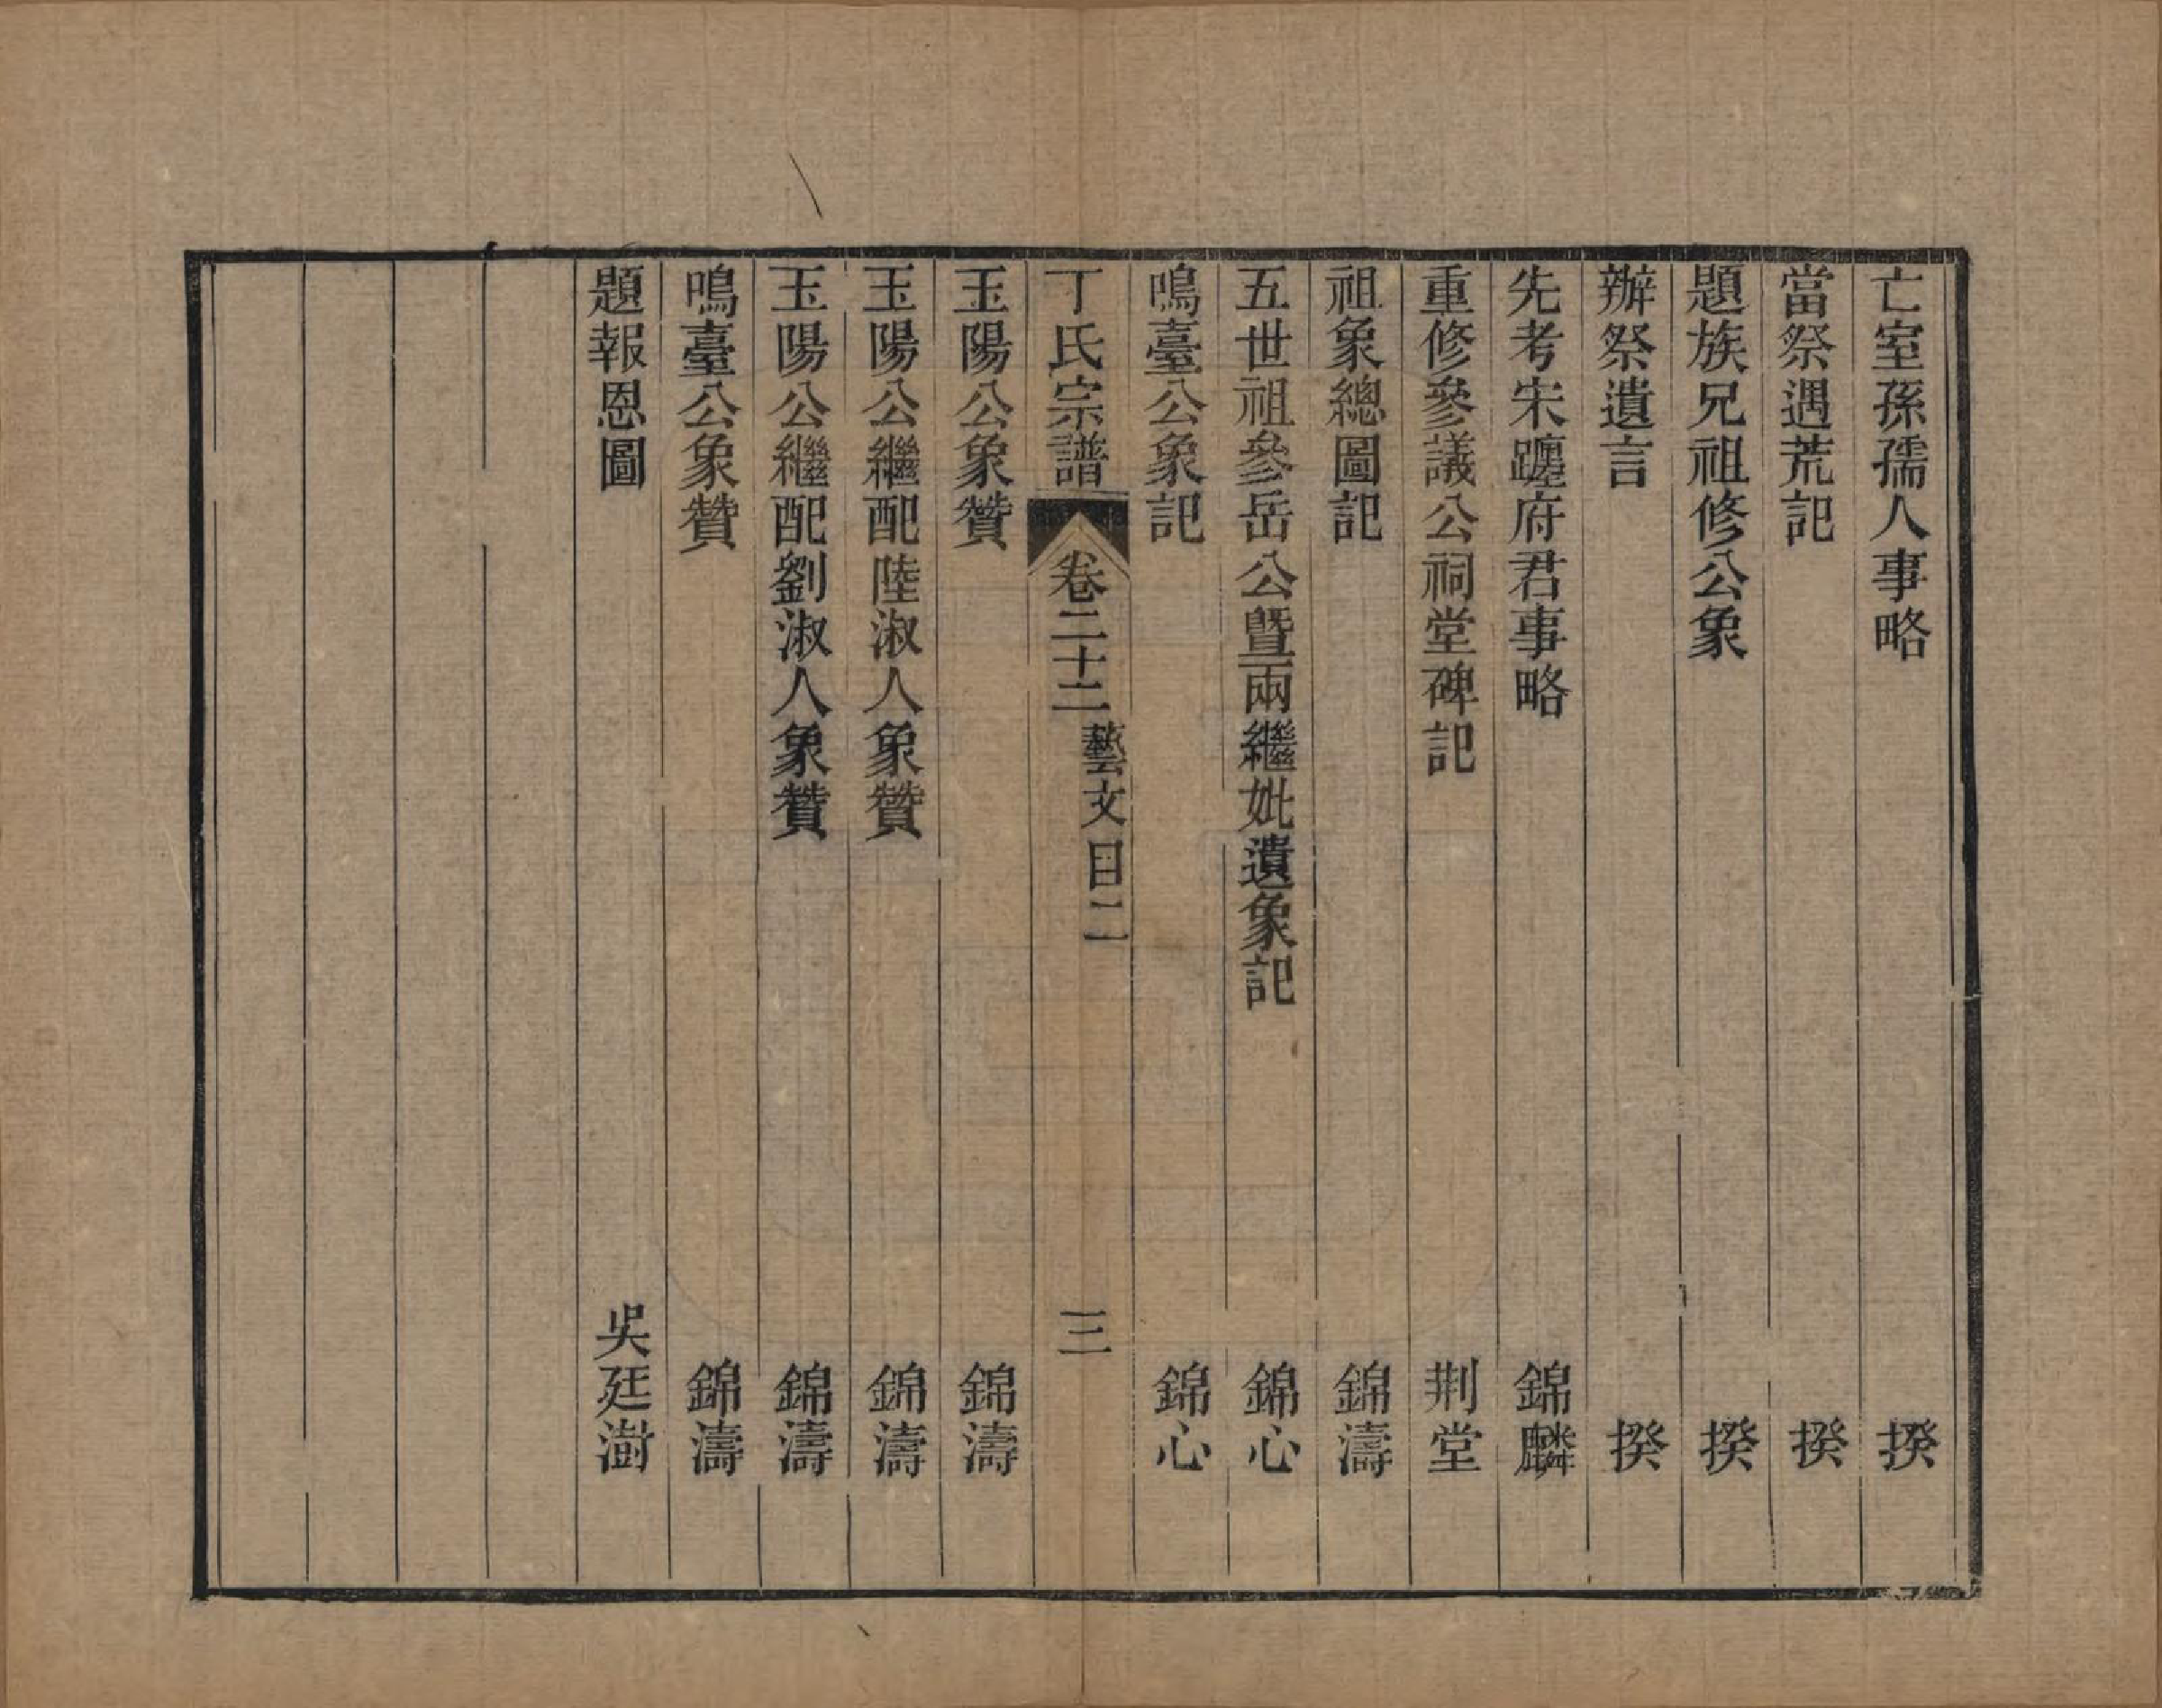 亡室孫孺人事略　揆
當祭遇荒記　揆
題族兄祖修公象　揆
辦祭遺言　揆
先考宋躔府君事略　錦麟
重修參議公祠堂碑記　荆堂
祖象總圖記　錦濤
五世祖參岳公暨兩繼妣遺象記　錦心
鳴臺公象記　錦心
丁氏宗譜　卷二十二　藝文目二　三
玉陽公象贊　錦濤
玉陽公繼配陸淑人象贊　錦濤
玉陽公繼配劉淑人象贊　錦濤
鳴臺公象贊　錦濤
題報恩圖　吳廷澍